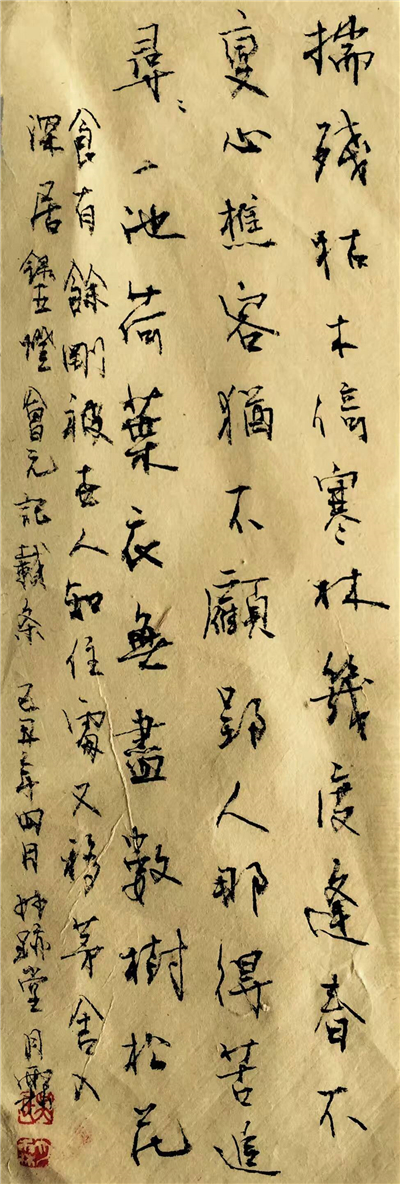 摧殘枯木倚寒林幾度逢春不
變心樵客猶不顧郢人那得苦追
尋〻一池荷葉衣無盡數樹松花
食有餘剛被世人知住處又移茅舍入
深居 錄五燈會元記載條 己丑年四月 堂月